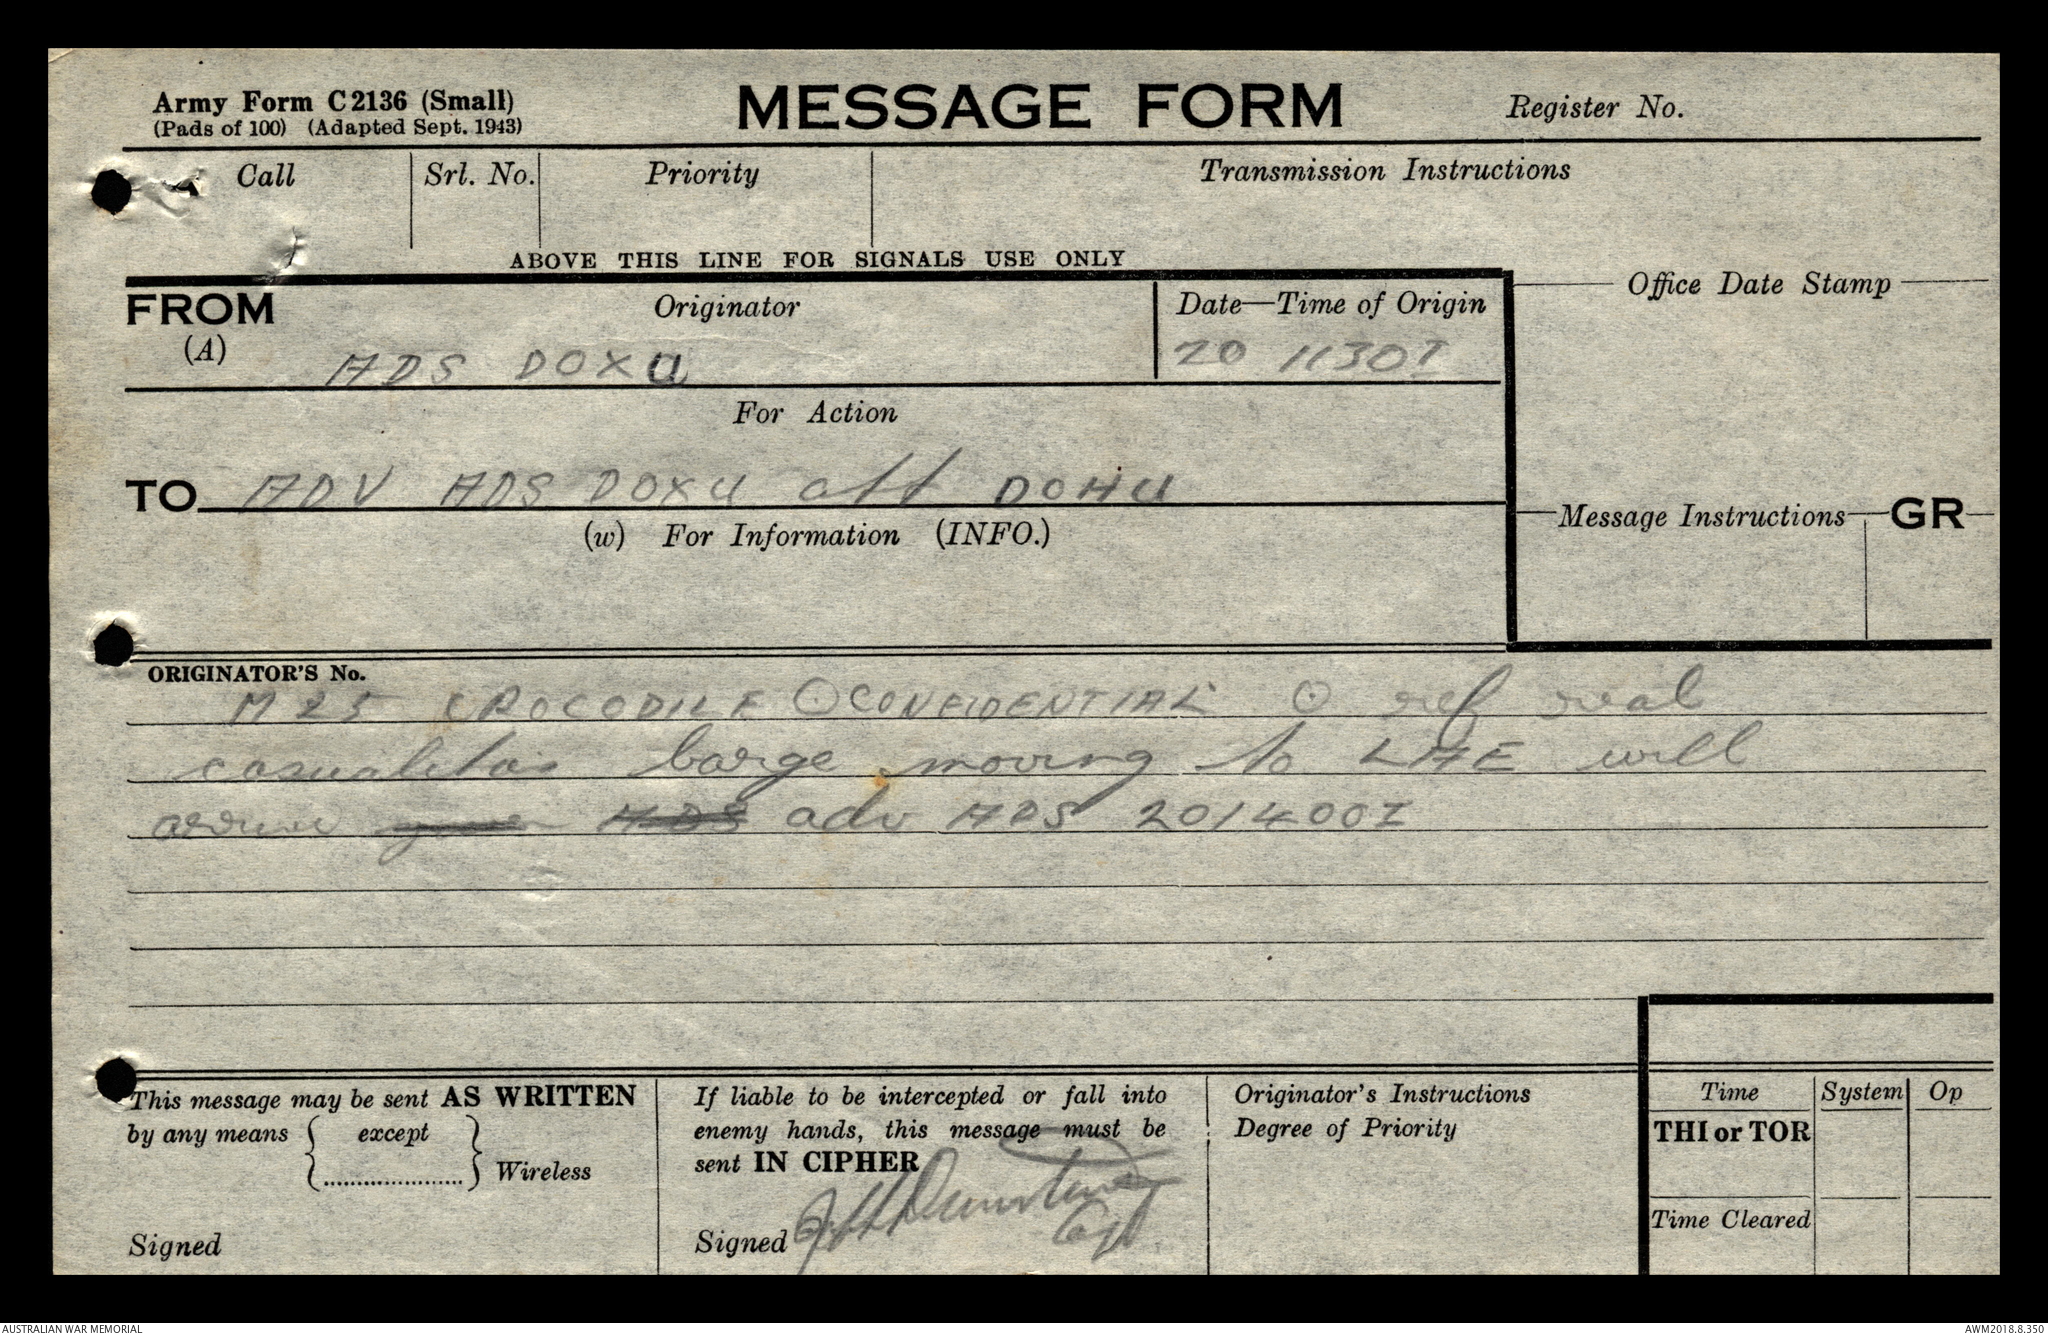 Army Form C2136 (Small)
(Pads of 100) (Adapted Sept. 1943)
MESSAGE FORM
Register No.
Call Srl. No. Priority Transmission Instructions
ABOVE THIS LINE FOR SIGNALS USE ONLY
FROM Originator Date—Time of Origin Office Date Stamp
(A) ADS DOXU 20 1130I
For Action
TO ADV ADS DOXU att DOHU
Message Instructions GR
(w) For Information (INFO.)
ORIGINATOR'S No.
M25 CROCODILE O CONFIDENTIAL O ref
casualties barge moving to LAE will
arrive ADS adv ADS 201400I
This message may be sent AS WRITTEN
by any means { except
....................} Wireless
Signed
If liable to be intercepted or fall into
enemy hands, this message must be
sent IN CIPHER
Signed Capt
Originator's Instructions
Degree of Priority
Time System Op
THI or TOR
Time Cleared
AUSTRALIAN WAR MEMORIAL
AWM2018.8.350